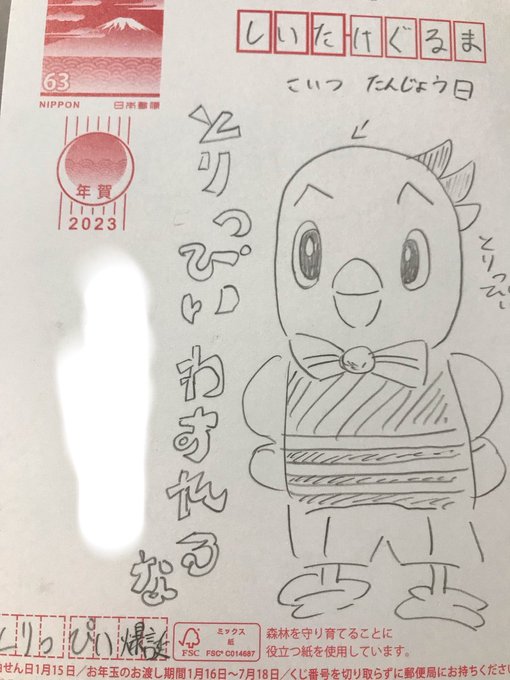 63
NIPPON 日本郵便
年賀
2023
しいたけぐるま
こいつ たんじょう日
とりっぴぃわすれるな
とりっぴぃ
とりっぴぃ爆誕
FSC
ミックス
紙
FSC® C014687
森林を守り育てることに
役立つ紙を使用しています。
せん日1月15日／お年玉のお渡し期間1月16日～7月18日／くじ番号を切り取らずに郵便局にお持ちくださ